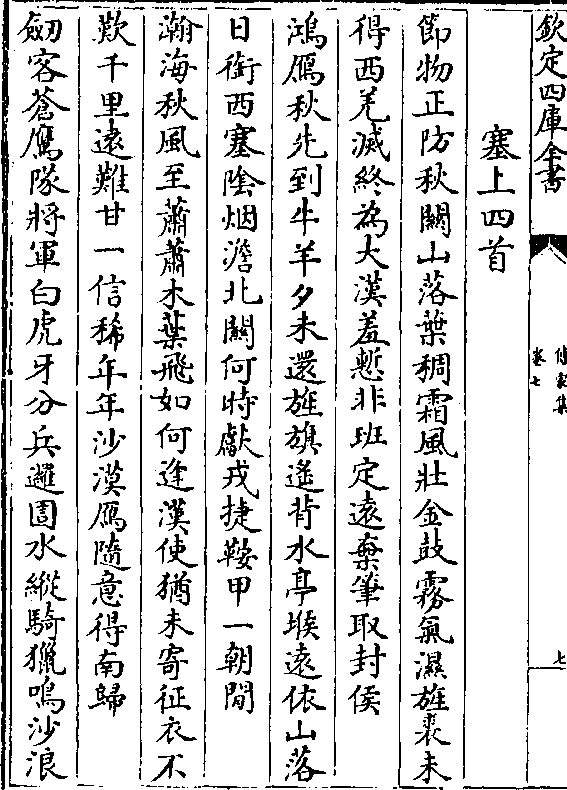 欽定四庫全書
傳家集
卷七
七
塞上四首
節物正防秋關山落葉稠霜風壯金鼓霧氣濕旌裘未
得西羌滅終為大漢羞慙非班定遠棄筆取封侯
鴻鴈秋先到牛羊夕未還旌旗遙背水亭堠遠依山落
日銜西塞陰烟澹北關何時獻戎捷鞍甲一朝閒
瀚海秋風至蕭蕭木葉飛如何逢漢使猶未寄征衣不
歎千里遠難甘一信稀年年沙漠鴈隨意得南歸
劒客蒼鷹隊將軍白虎牙分兵邏圁水縱騎獵鳴沙浪